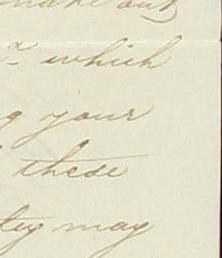 make out
which
g your
these
tey may